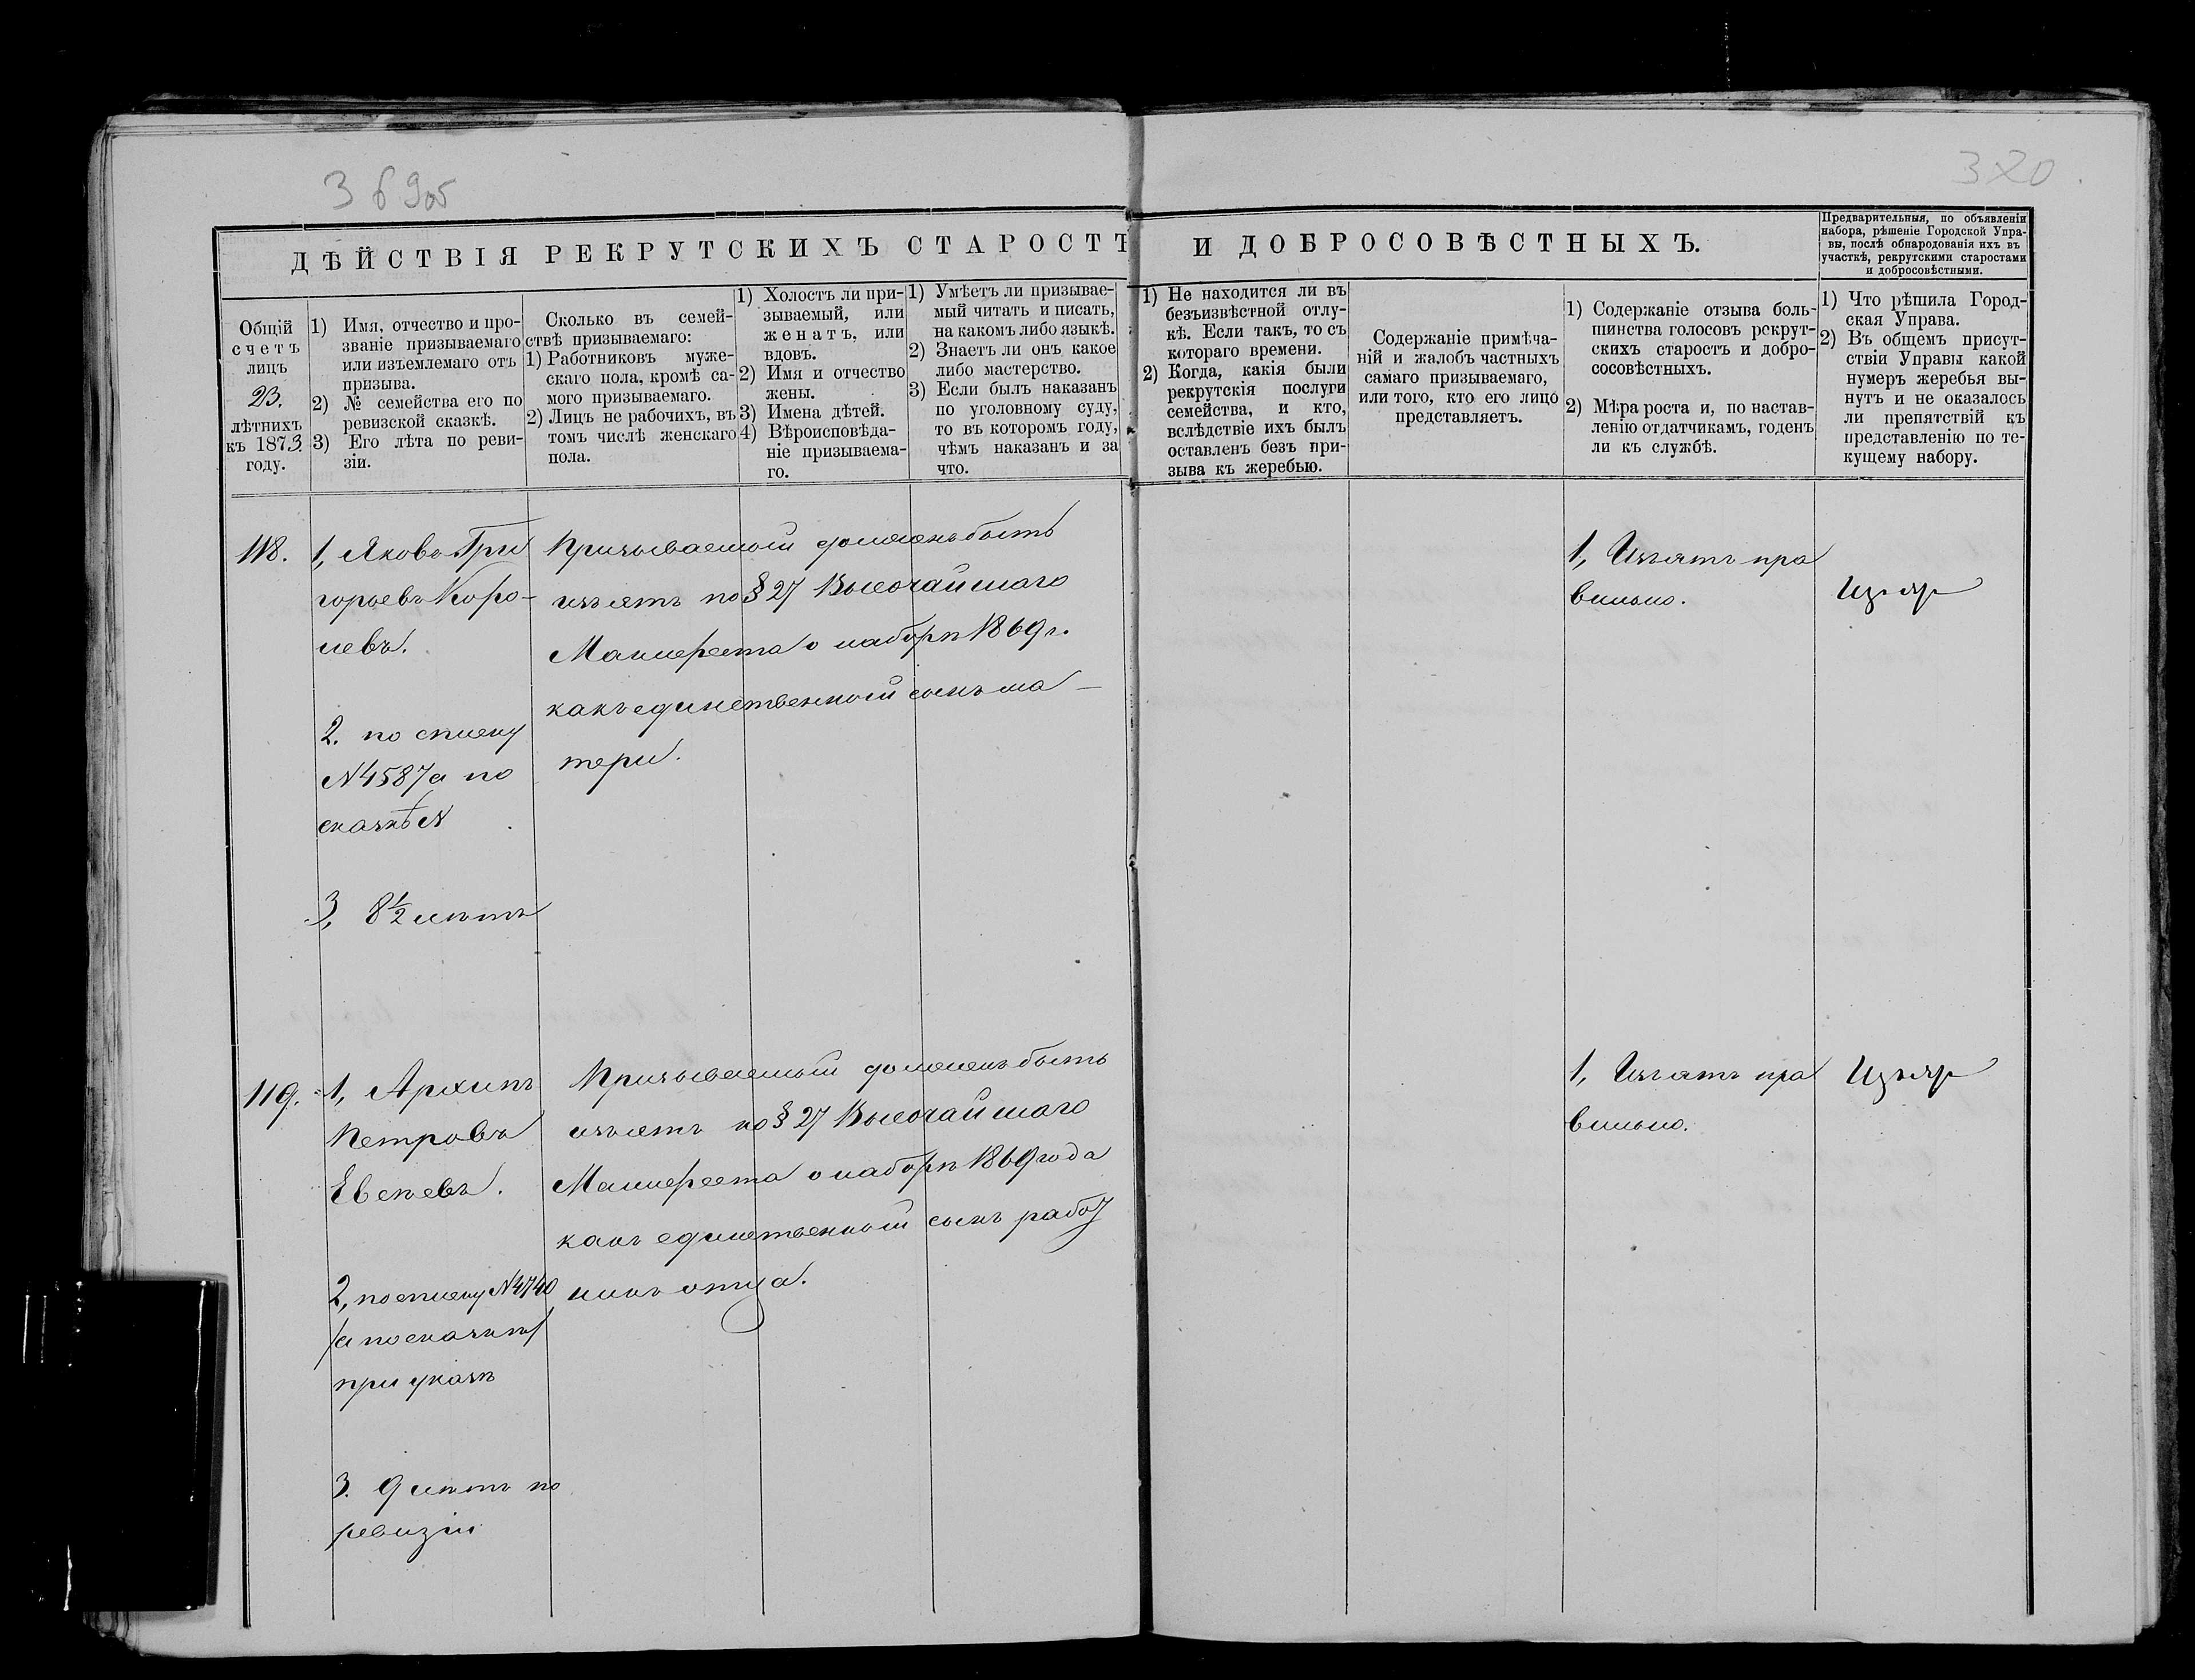 369об
320
ДѢЙСТВІЯ РЕКРУТСКИХЪ СТАРОСТЪ И ДОБРОСОВѢСТНЫХЪ.
Предварительныя, по объявленіи
набора, рѣшеніе Городской Упра-
вы, послѣ обнародованія ихъ въ
участкѣ, рекрутскими старостами
и добросовѣстными.
Общій
счетъ
лицъ
23.
лѣтнихъ
къ 1873
году.
1) Имя, отчество и про-
званіе призываемаго
или изъемлемаго отъ
призыва.
2) № семейства его по
ревизской сказкѣ.
3) Его лѣта по реви-
зіи.
Сколько въ семей-
ствѣ призываемаго:
1) Работниковъ муже-
скаго пола, кромѣ са-
мого призываемаго.
2) Лицъ не рабочихъ, въ
томъ числѣ женскаго
пола.
1) Холостъ ли при-
зываемый, или
женатъ, или
вдовъ.
2) Имя и отчество
жены.
3) Имена дѣтей.
4) Вѣроисповѣда-
ніе призываема-
го.
1) Умѣетъ ли призывае-
мый читать и писать,
на какомъ либо языкѣ.
2) Знаетъ ли онъ какое
либо мастерство.
3) Если былъ наказанъ
по уголовному суду,
то въ которомъ году,
чѣмъ наказанъ и за
что.
1) Не находится ли въ
безъизвѣстной отлу-
кѣ. Если такъ, то съ
котораго времени.
2) Когда, какія были
рекрутскія послуги
семейства, и кто,
вслѣдствіе ихъ былъ
оставленъ безъ при-
зыва къ жеребью.
Содержаніе примѣча-
ній и жалобъ частныхъ
самаго призываемаго,
или того, кто его лицо
представляетъ.
1) Содержаніе отзыва боль-
шинства голосовъ рекрут-
скихъ старостъ и добро-
сосовѣстныхъ.
2) Мѣра роста и, по настав-
ленію отдатчикамъ, годенъ
ли къ службѣ.
1) Что рѣшила Город-
ская Управа.
2) Въ общемъ присут-
ствіи Управы какой
нумеръ жеребья вы-
нутъ и не оказалось
ли препятствій къ
представленію по те-
кущему набору.
118.
1, Яковъ Гри
горьевъ Коро-
левъ.
2. по списку
№4587 а по
сказкѣ №
3, 8½ лѣтъ
Призываемый долженъ быть
изъятъ по § 27 Высочайшаго
Манифеста о наборѣ 1869 г.
какъ единственный сынъ ма-
тери.
1, Изъятъ пра
вильно.
119.
1, Архипъ
Петровъ
2, по списку №4740
а по сказкѣ
при указѣ
3. 9 лѣтъ по
ревизіи
Призываемый долженъ быть
изъятъ по § 27 Высочайшаго
Манифеста о наборѣ 1869 года
какъ единственный сынъ работ
никъ отца.
1, Изъятъ пра
вильно.